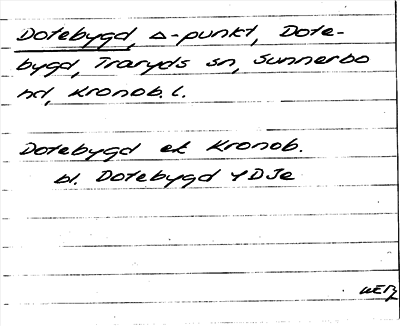 Dotebygd, △-punkt, Dote-
bygd, Traryds sn, Sunnerbo
hd, Kronob. l.
Dotebygd ek Kronob.
bl. Dotebygd 4DJe